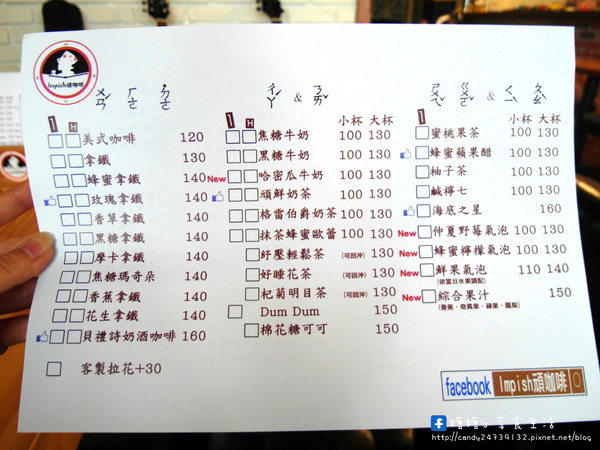 Impish頑咖啡
ㄨㄢˊ ㄏㄜ ㄉㄜ˙
I H
美式咖啡 120
拿鐵 130
蜂蜜拿鐵 140
玫瑰拿鐵 140
香草拿鐵 140
黑糖拿鐵 140
摩卡拿鐵 140
焦糖瑪奇朵 140
香蕉拿鐵 140
花生拿鐵 140
貝禮詩奶酒咖啡 160
客製拉花+30
ㄔㄚˊ & ㄋㄞˇ
I H 小杯 大杯
焦糖牛奶 100 130
黑糖牛奶 100 130
New 哈密瓜牛奶 100 130
頑鮮奶茶 100 130
格雷伯爵奶茶 100 130
抹茶蜂蜜歐蕾 100 130
紓壓輕鬆茶 (可回沖) 130
好睡花茶 (可回沖) 130
杞菊明目茶 (可回沖) 130
Dum Dum 150
棉花糖可可 150
I 小杯 大杯
蜜桃果茶 100 130
蜂蜜蘋果醋 100 130
柚子茶 100 130
鹹檸七 100 130
海底之星 160
New 仲夏野莓氣泡 100 130
New 蜂蜜檸檬氣泡 100 130
New 鮮果氣泡 110 140
(依當日水果調配)
New 綜合果汁 150
(香蕉、奇異果、蘋果、鳳梨)
facebook Impish頑咖啡
糖糖's 享食生活
http://candy24739132.pixnet.net/blog